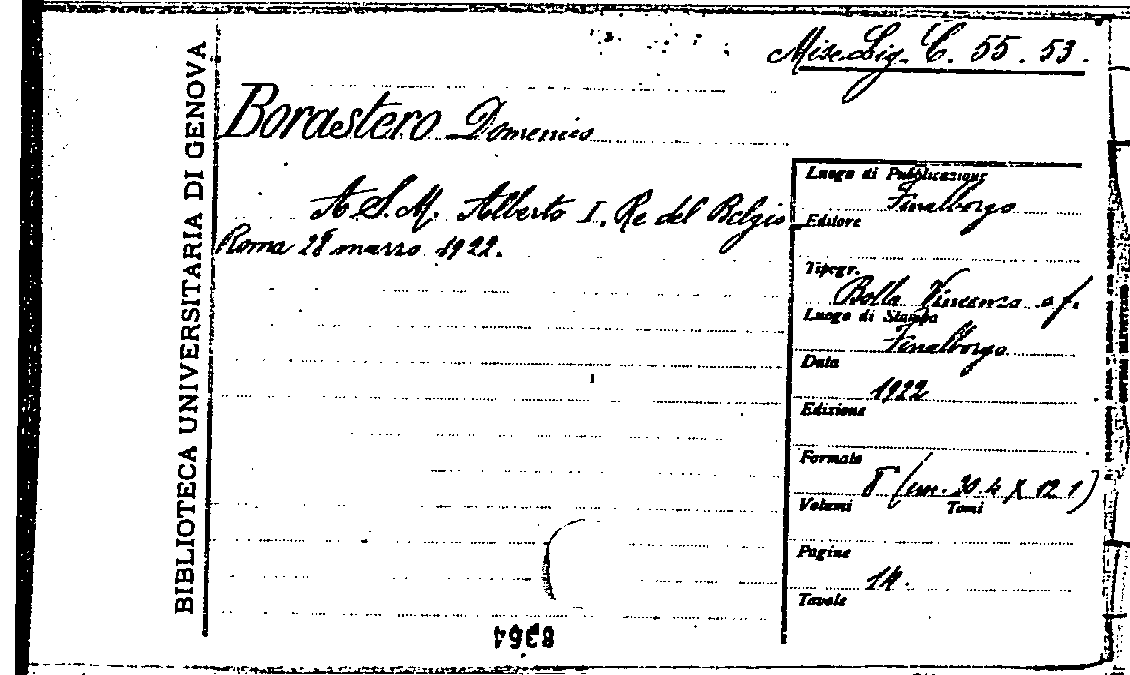 Misc. Lig. C. 55. 53.
BIBLIOTECA UNIVERSITARIA DI GENOVA
Borastero Domenico
A S. M. Alberto I. Re del Belgio
Roma 28 marzo 1922.
Luogo di Pubblicazione
Finalborgo
Editore
Tipogr.
Bolla Vincenzo e f.
Luogo di Stampa
Finalborgo
Data
1922
Edizione
Formato
8° (cm. 30.4 X 12.1)
Volumi Tomi
Pagine
14.
Tavole
8364